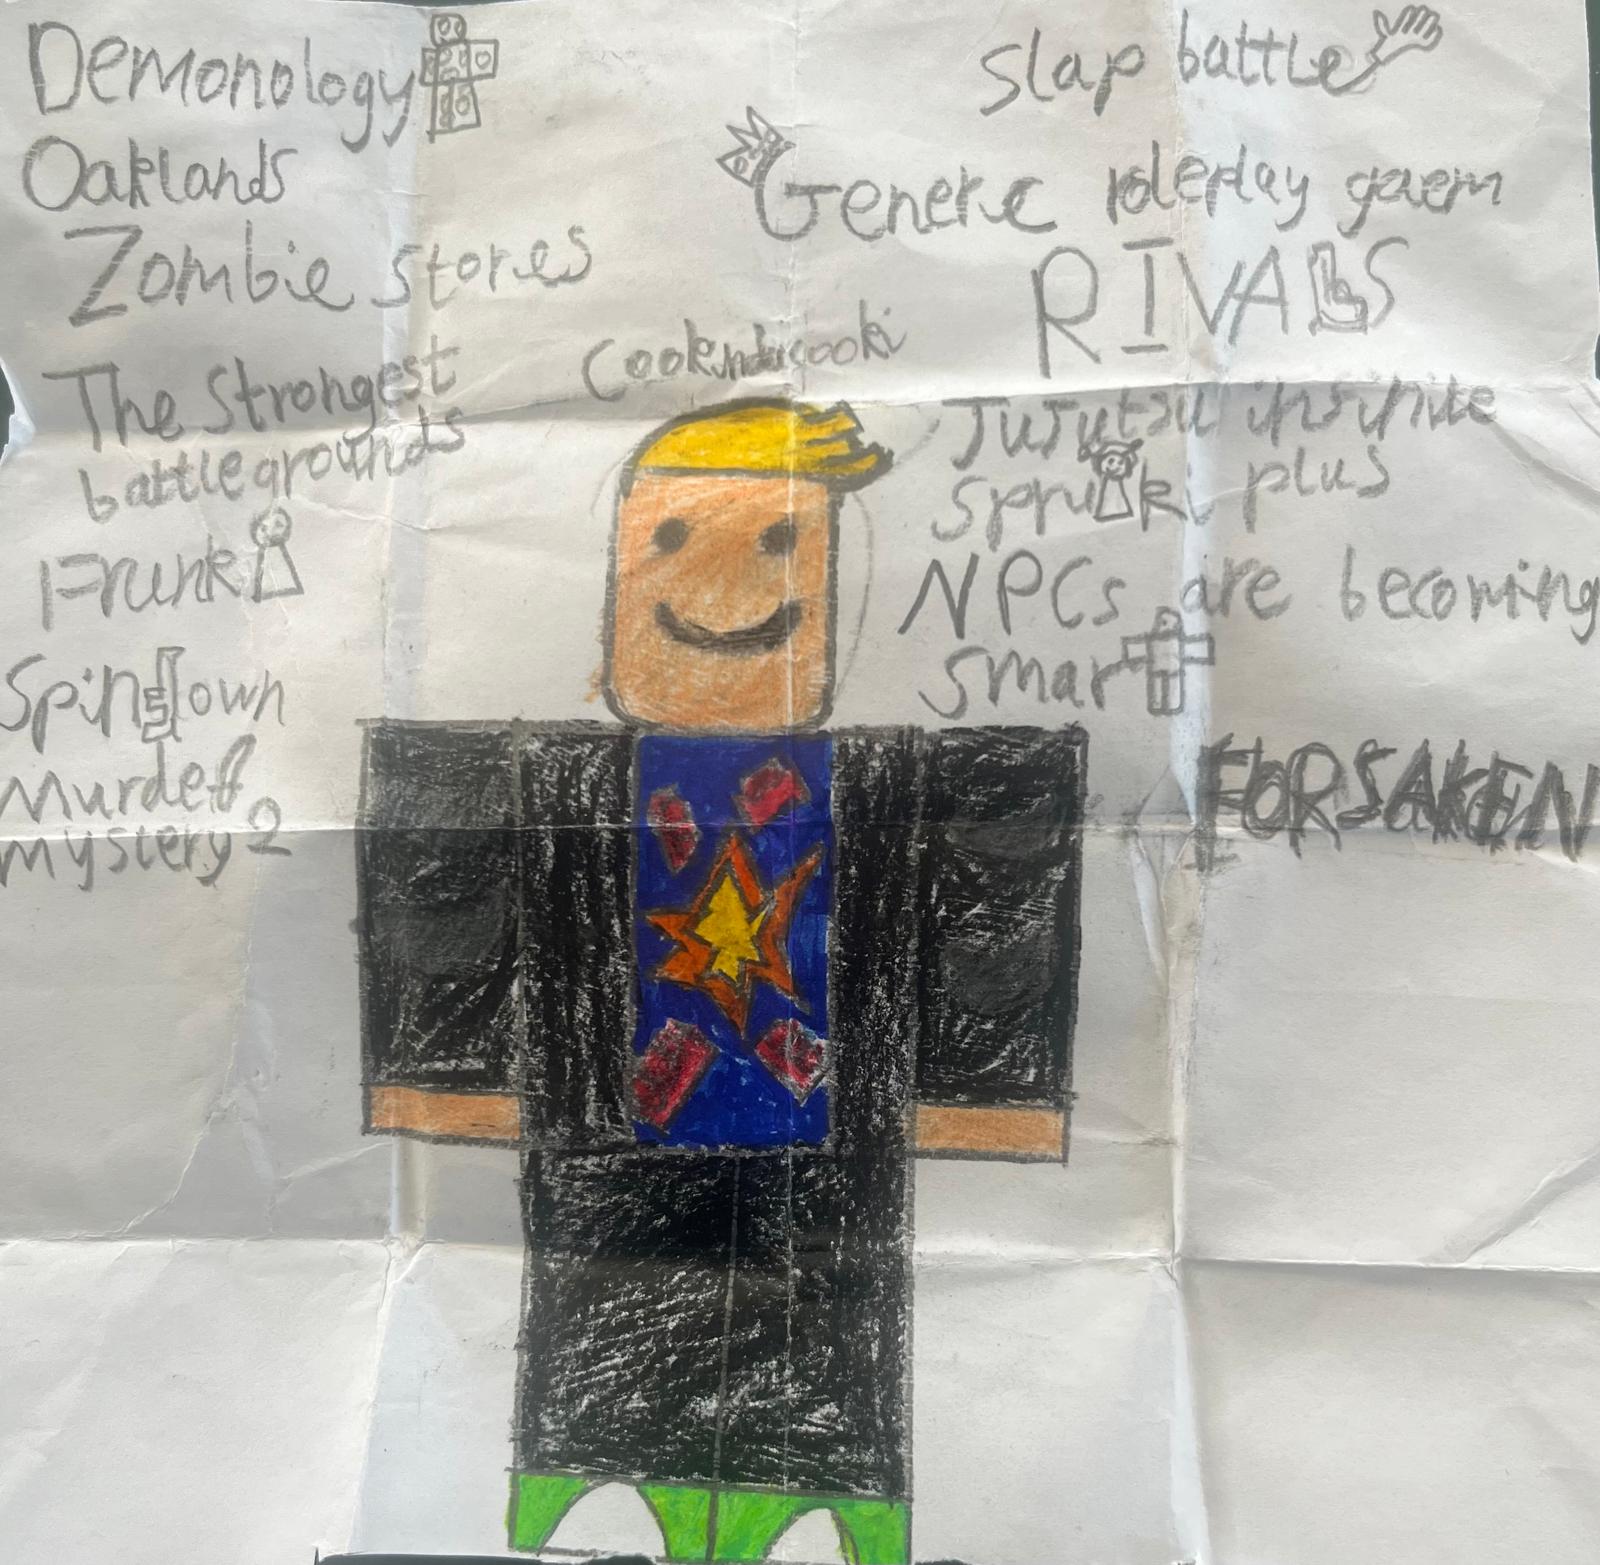 Demonology
Oaklands
Zombie stores
The Strongest
battlegrounds
Frunki
Spin
own
Murder
mystery 2
Slap battle
Generic roleplay gaem
RIVALS
Jujutsu infinite
Sprunki plus
NPCs are becoming
smart
FORSAKEN